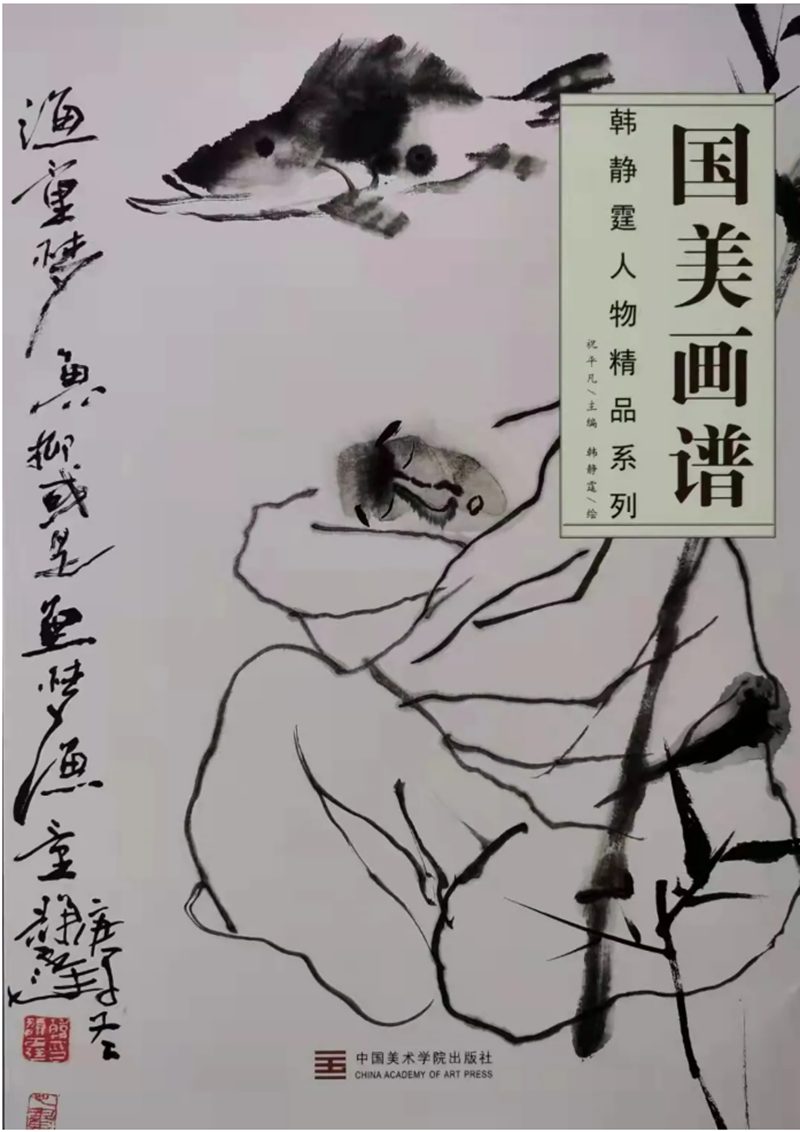 国美画谱
韩静霆人物精品系列
祝平凡/主编 韩静霆/绘
渔童梦鱼抑或是鱼梦渔童
静霆
中国美术学院出版社
CHINA ACADEMY OF ART PRESS